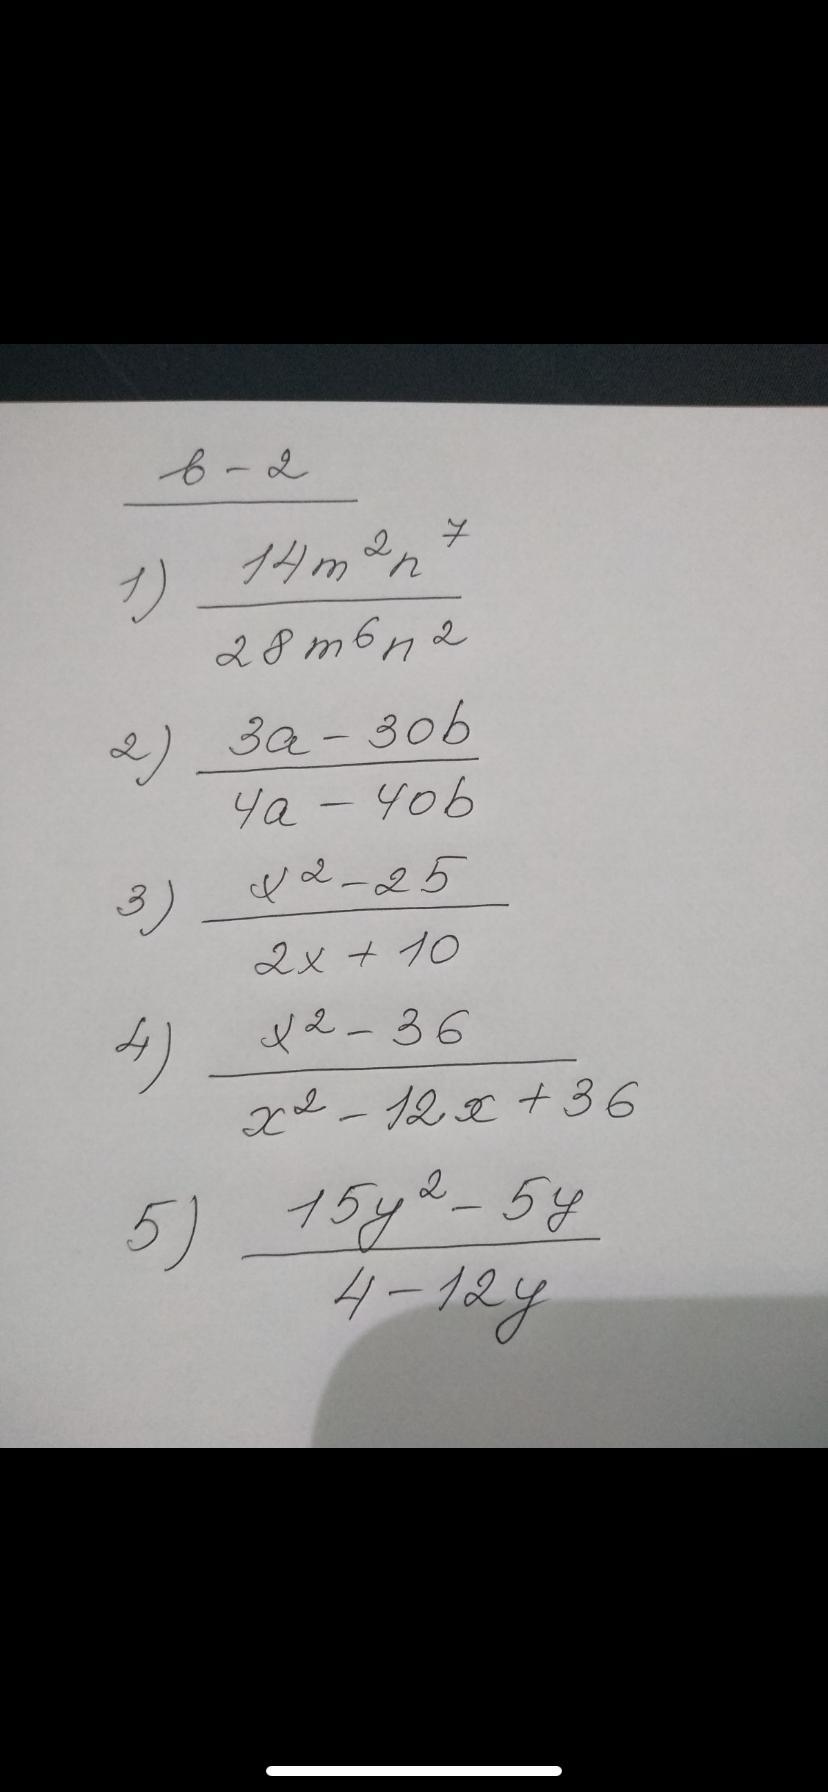 в - 2
1) 14m²n⁷
28m⁶n²
2) 3a - 30b
4a - 40b
3) x² - 25
2x + 10
4) x² - 36
x² - 12x + 36
5) 15y² - 5y
4 - 12y